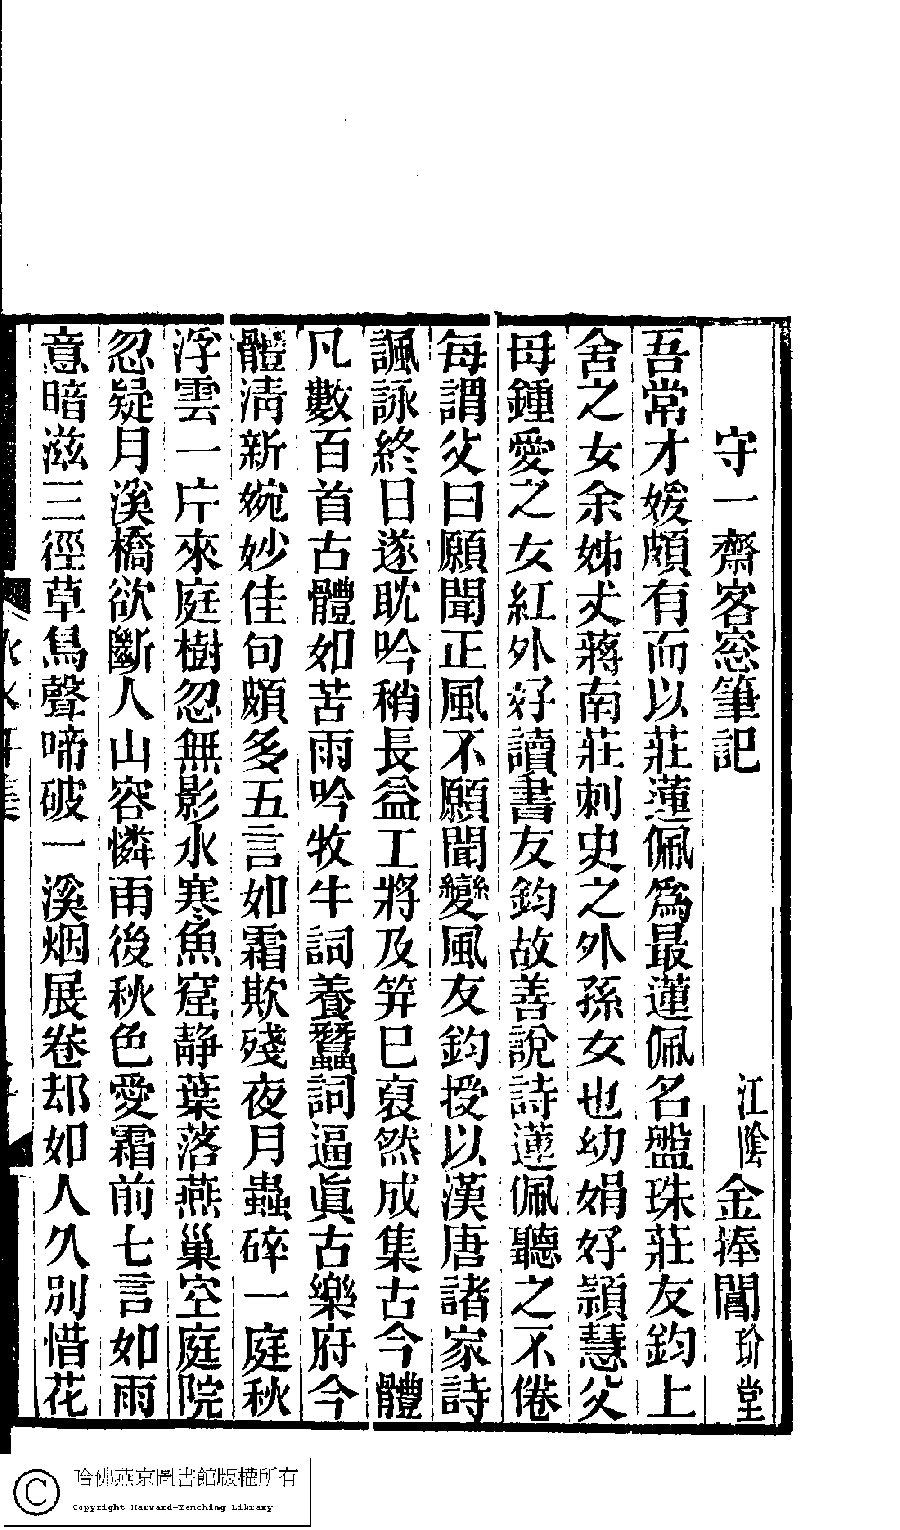 守一齋客窓筆記　江陰金捧閶玠堂
吾常才媛頗有而以莊蓮佩爲最蓮佩名盤珠莊友鈞上
舍之女余姊丈蔣南莊刺史之外孫女也幼娟好頴慧父
母鍾愛之女紅外好讀書友鈞故善說詩蓮佩聽之不倦
每謂父曰願聞正風不願聞變風友鈞授以漢唐諸家詩
諷詠終日遂耽吟稍長益工將及笄巳裒然成集古今體
凡數百首古體如苦雨吟牧牛詞養蠶詞逼眞古樂府今
體淸新婉妙佳句頗多五言如霜欺殘夜月蟲碎一庭秋
浮雲一片來庭樹忽無影水寒魚窟靜葉落燕巢空庭院
忽疑月溪橋欲斷人山容憐雨後秋色愛霜前七言如雨
意暗滋三徑草鳥聲啼破一溪烟展卷却如人久別惜花
哈佛燕京圖書館版權所有
Copyright Harvard-Yenching Library